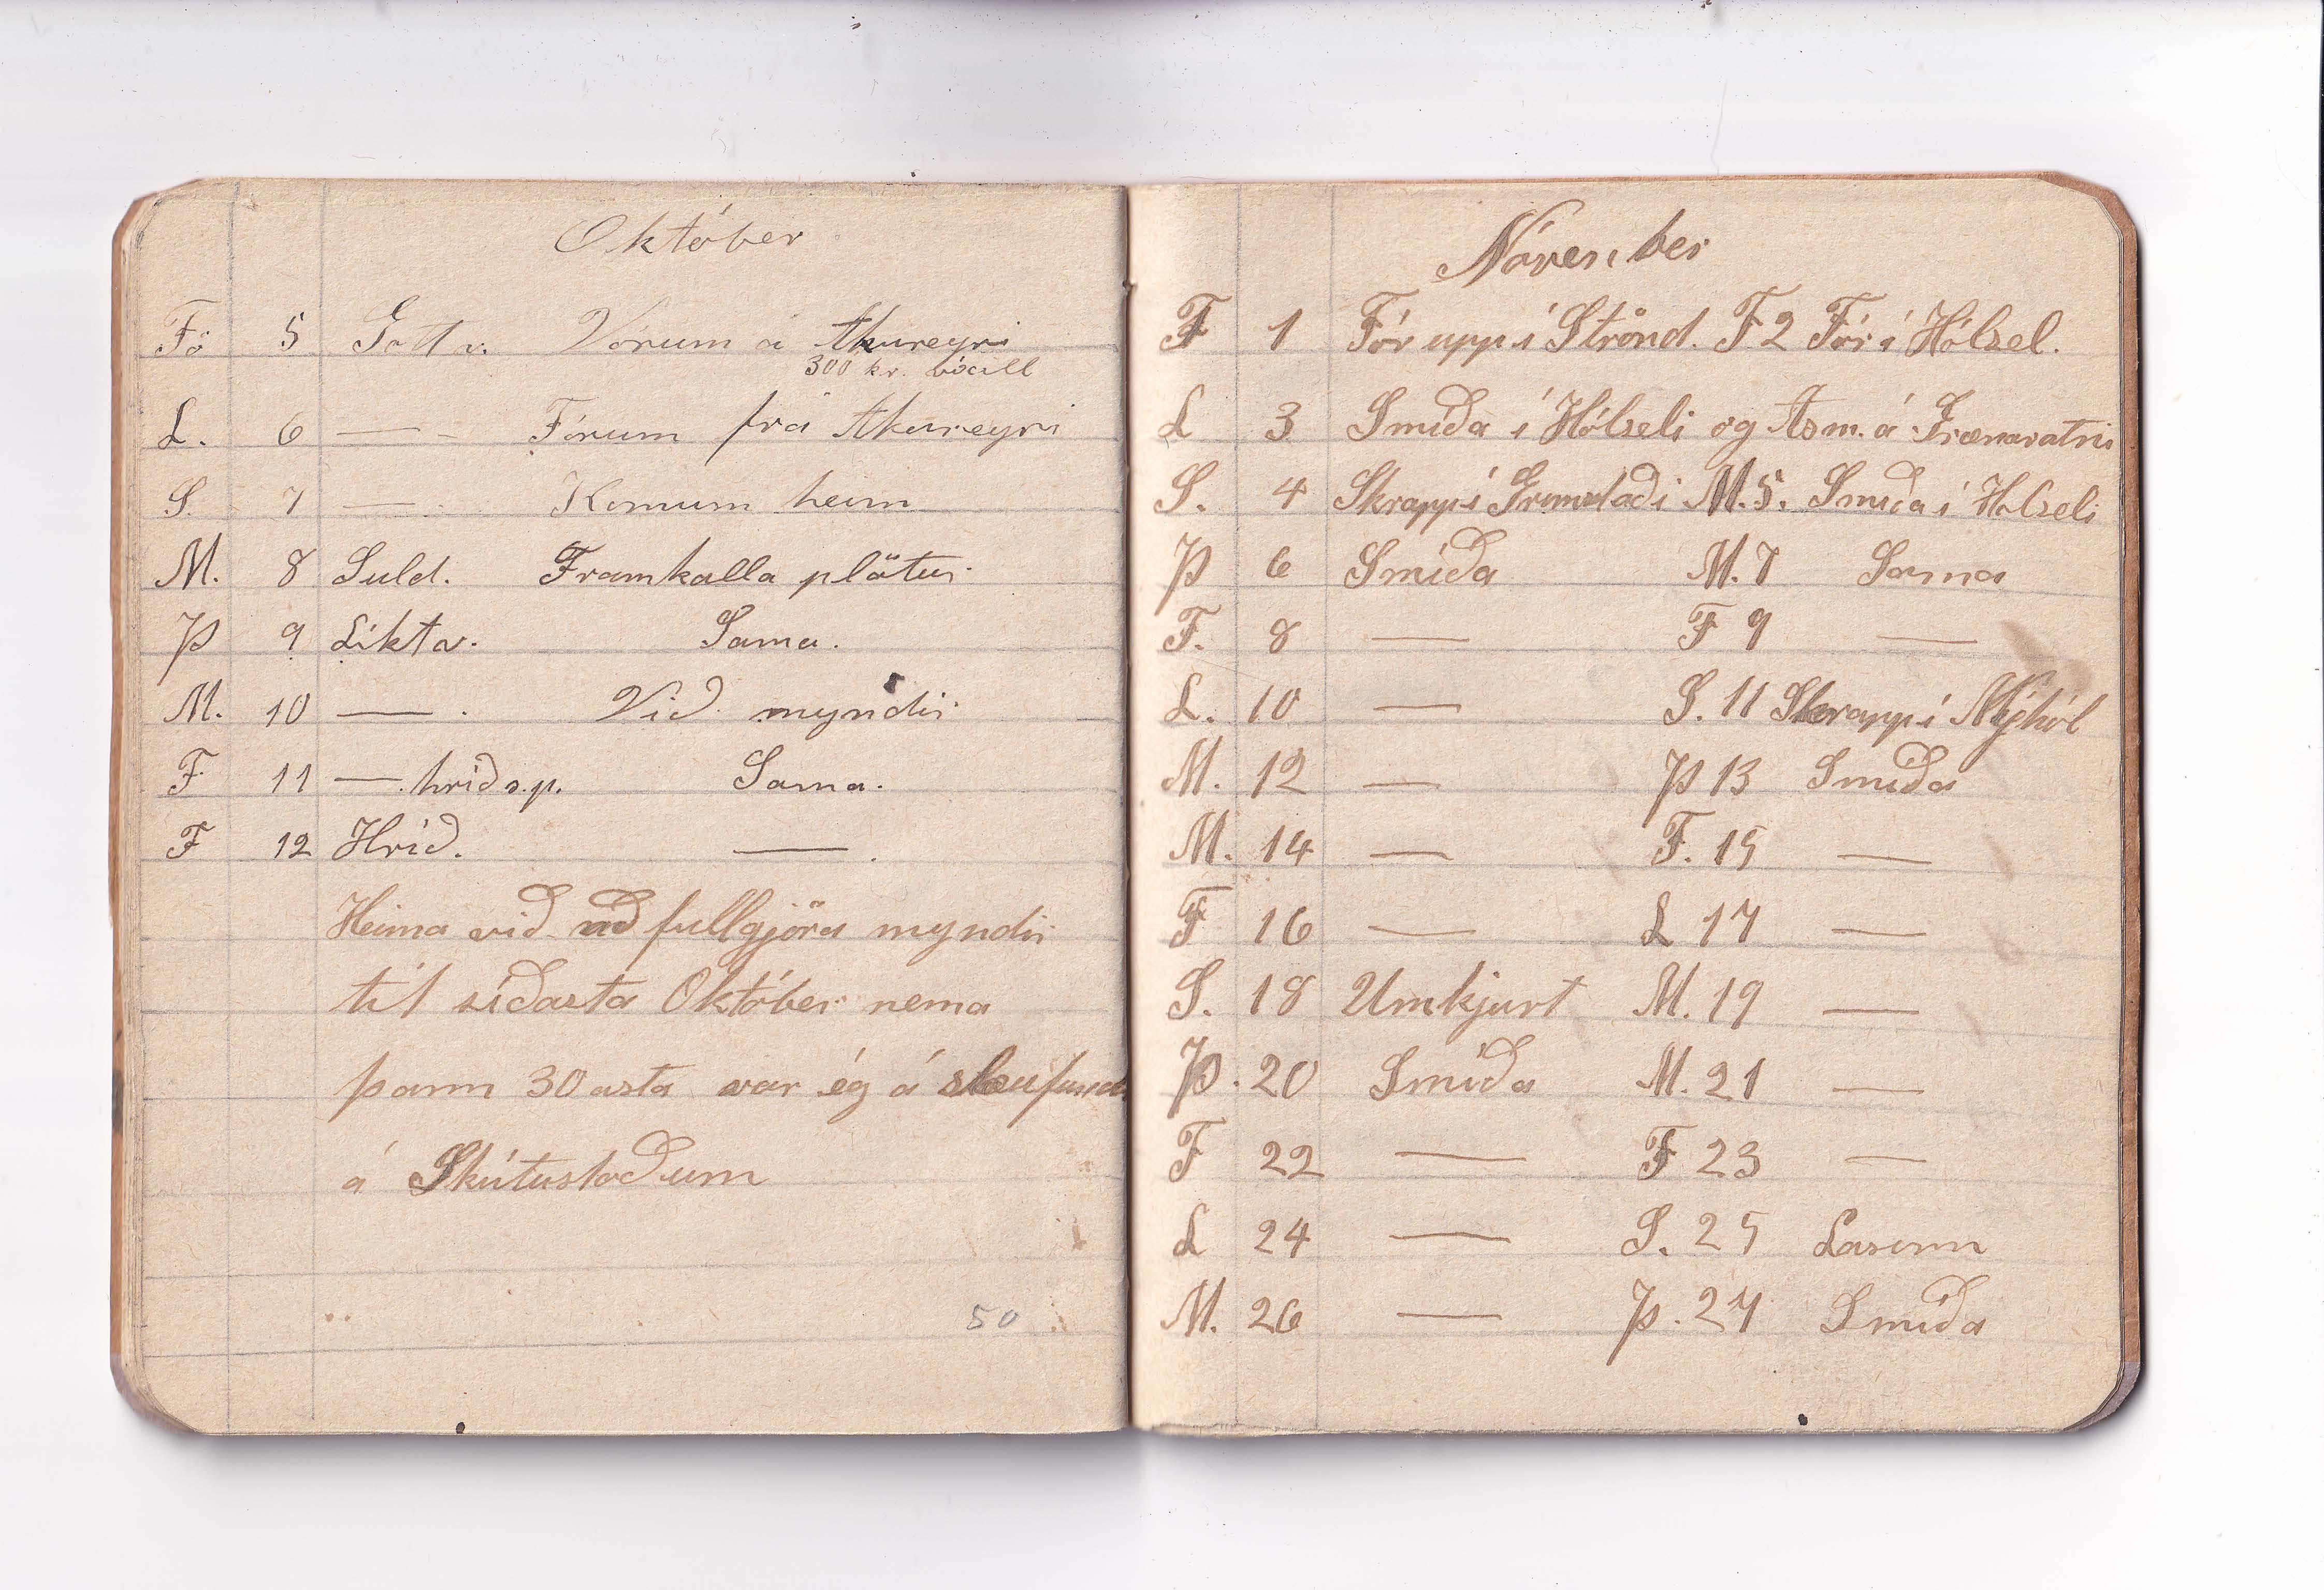 Október
Fö 5 Gott v. Vórum á Akureyri
300 kr. víxill
L. 6 — - Fórum frá Akureyri
S. 7 — . Komum heim
M. 8 Suld. Framkalla plötur
Þ 9 Líkt v. Sama.
M. 10 — . Við myndir
F 11 — . hríð s.p. Sama.
F 12 Hríð. — .
Heima við að fullgjöra myndir
til síðasta Október nema
þann 30asta var ég á
á Skútustoðum
50
Nóvember
F 1 Fór upp í Strönd. F 2 Fór í Hólsel.
L 3 Smíða í Hólseli og Asm. á
S. 4 Skrapp í M. 5. Smíða í Hólseli
Þ 6 Smíða M. 7 Sama
F. 8 — F 9 —
L. 10 — S. 11 Skrapp í Nýhól
M. 12 — Þ 13 Smíða
M. 14 — F. 15 —
F 16 — L 17 —
S. 18 Umkjurt M. 19 —
Þ. 20 Smíða M. 21 —
F 22 — F 23 —
L 24 — S. 25 Lasinn
M. 26 — Þ. 27 Smíða